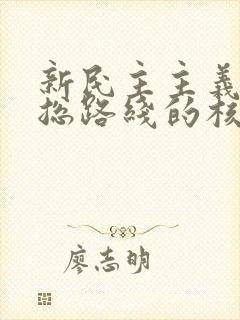 新民主主義
总路綫的核
廖志明